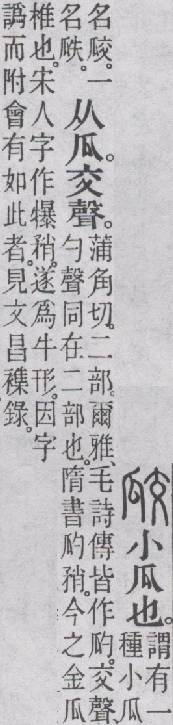 㼎小瓜也。謂有一
種小瓜
名㼎。一
名瓞。
从瓜。交聲。
蒲角切。二部。爾雅、毛詩傳皆作瓝。交聲
勺聲同在二部也。隋書瓝矟。今之金瓜
椎也。宋人字作犦矟。遂爲牛形。因字
譌而附會有如此者。見文昌襍錄。